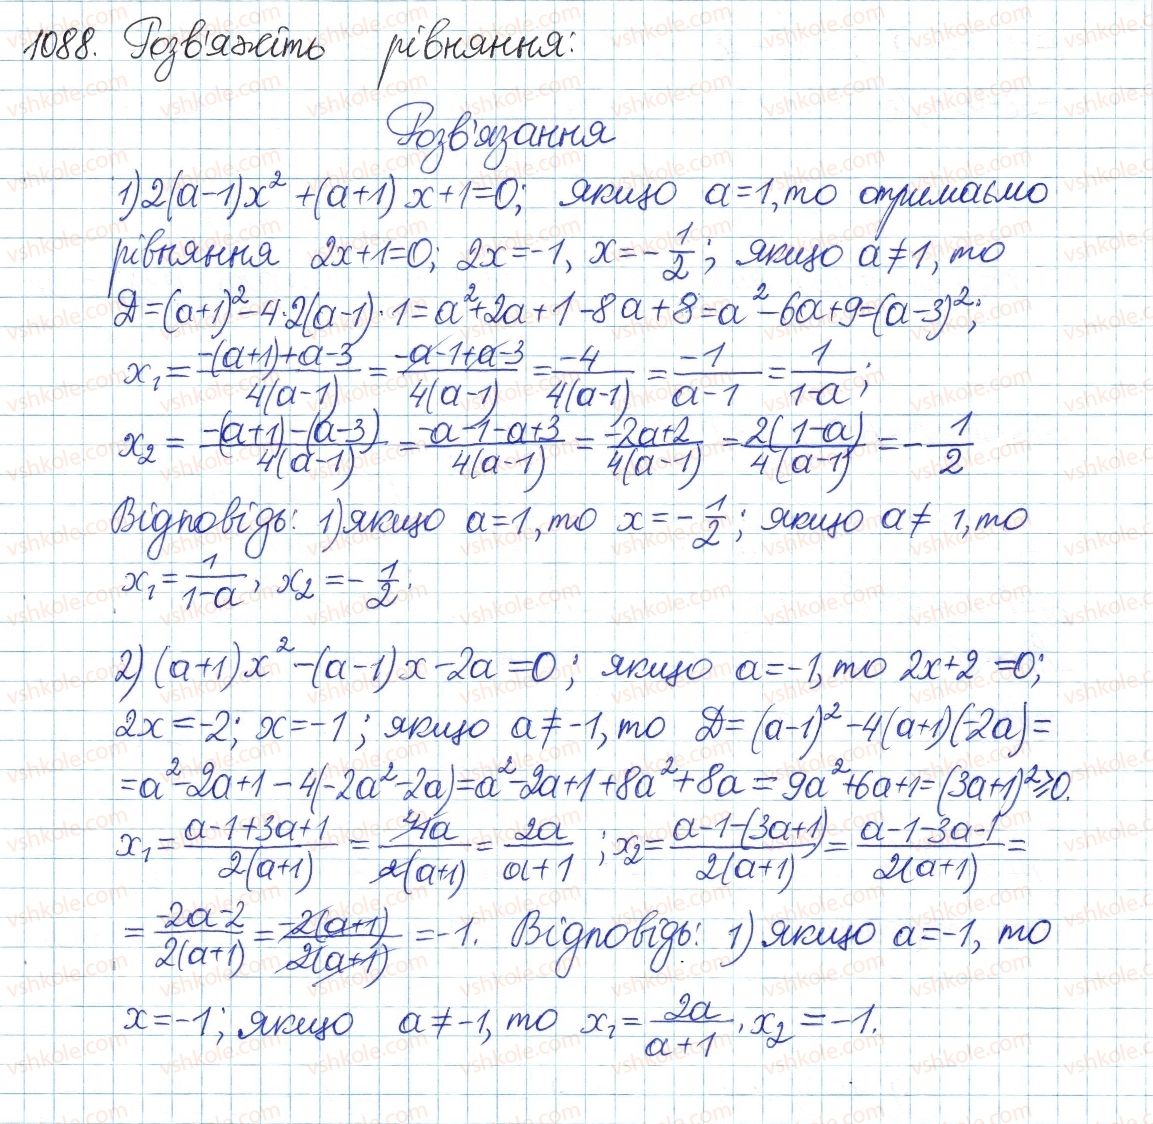 1088. Розв'яжіть рівняння:
Розв'язання
1) 2(a-1)x² +(a+1) x+1=0; якщо a=1, то отримаємо
рівняння 2x+1=0; 2x=-1, x=-1/2; якщо a≠1, то
D=(a+1)²-4·2(a-1)·1=a²+2a+1-8a+8=a²-6a+9=(a-3)²;
x₁=(-(a+1)+a-3)/(4(a-1))=(-a-1+a-3)/(4(a-1))=(-4)/(4(a-1))=(-1)/(a-1)=1/(1-a);
x₂=(-(a+1)-(a-3))/(4(a-1))=(-a-1-a+3)/(4(a-1))=(-2a+2)/(4(a-1))=(2(1-a))/(4(a-1))=-1/2
Відповідь: 1) якщо a=1, то x=-1/2; якщо a≠1, то
x₁=1/(1-a), x₂=-1/2.
2) (a+1)x²-(a-1)x-2a=0; якщо a=-1, то 2x+2=0;
2x=-2; x=-1; якщо a≠-1, то D=(a-1)²-4(a+1)(-2a)=
=a²-2a+1-4(-2a²-2a)=a²-2a+1+8a²+8a=9a²+6a+1=(3a+1)²≥0.
x₁=(a-1+3a+1)/(2(a+1))=(4a)/(2(a+1))=(2a)/(a+1); x₂=(a-1-(3a+1))/(2(a+1))=(a-1-3a-1)/(2(a+1))=
=(-2a-2)/(2(a+1))=(-2(a+1))/(2(a+1))=-1. Відповідь: 1) якщо a=-1, то
x=-1; якщо a≠-1, то x₁=(2a)/(a+1), x₂=-1.